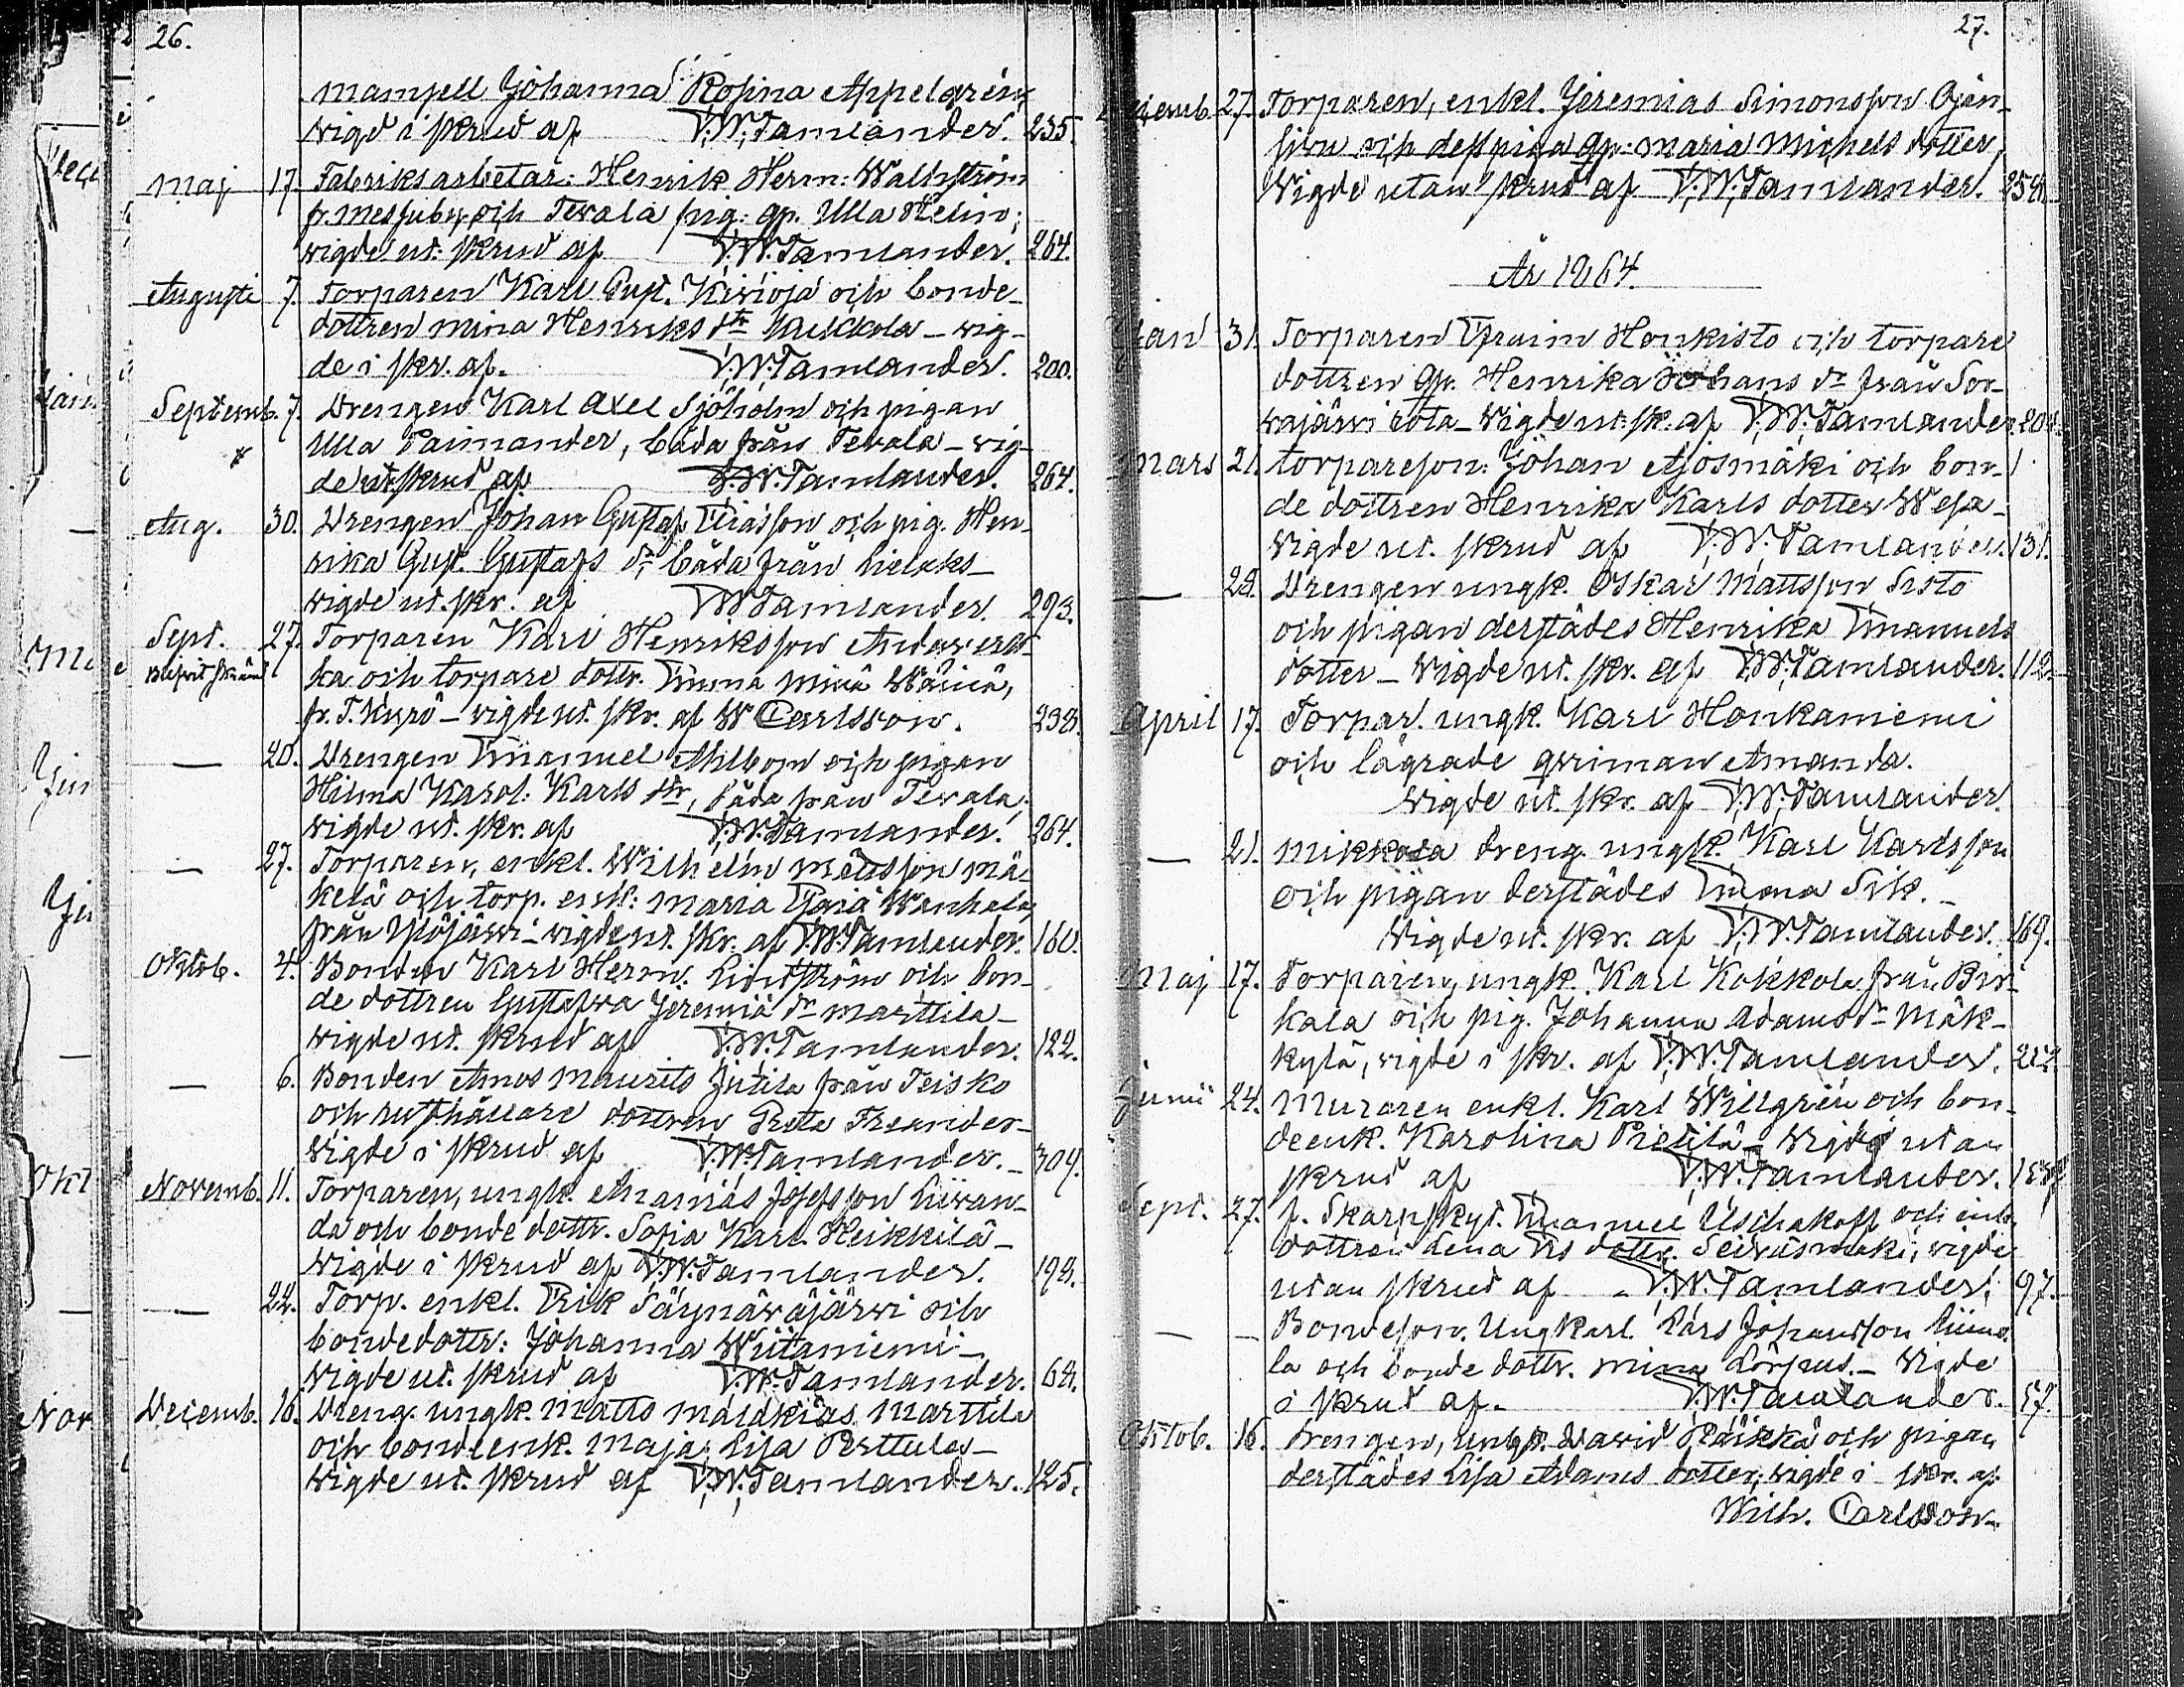 26.
Mamsell Johanna Rosina Appelgrén
vigd i skrud af F.W. Tamlander. 235.
Maj 17. Fabriksarbetar: Henrik Herm: Wallström
fr. Messuby och Tevala pig: qv. Ulla Helin;
vigde ut: skrud af F.W. Tamlander. 264.
Augusti 7. Torparen Karl Gust. Kivioja och bonde-
dottren Mina Henriks dtr - vig-
de i skr. af. F.W. Tamlander. 200.
Septemb. 7. Drengen Karl Axel Sjöholm och pigan
Ulla Paimander, båda från Tevala - vig-
de ut skrud af F.W. Tamlander. 264.
Aug. 30. Drengen Johan Gustaf Eliasson och pig. Hen-
rika Gust. Gustafs dr, båda från Lielaks -
vigde ut. skr. af F.W. Tamlander. 293.
Sept. 27. Torparen Karl Henriksson
ka och torpare dottr. Emma Mina Wäinä,
fr. T. Kyrö - vigde ut. skr. af W Carlsson. 238.
— 20. Drengen Emanuel Ahlbom och pigan
Hilma Karol: Karls dtr, båda från Tevala,
vigde ut. skr. af F.W. Tamlander. 264.
— 27. Torparen, enkl. Wilhelm Mattsson Mä-
kelä och torp. enk: Maria Wanhala,
från Ylöjärvi - vigde ut. skr. af F.W. Tamlander. 160.
Oktob. 4. Bonden Karl Herm. Lindström och bon-
de dottren Gustafva Jeremiä dr Marttila -
vigde ut. skrud af F.W. Tamlander. 122.
— 6. Bonden Amos Maurits Jutila från Teisko
och rusthållare dottren Greta Freander -
vigde i skrud af F.W. Tamlander. - 304.
Novemb. 11. Torparen, ungk. Ananias Josefsson
da och bonde dottr. Sofia Karl. Heikkilä -
vigde i skrud af F.W. Tamlander. 198.
— 22. Torp. enkl. Erik Säynäväjärvi och
bondedottr: Johanna Wiitaniemi -
vigde ut. skrud af F.W. Tamlander. 68.
Decemb. 16. Dreng. ungk. Matts Malakias Marttila
och bonde enk. Maja Lisa Perttula -
vigde ut. skrud af F.W. Tamlander. 125.
27.
27. Torparen, enkl. Jeremias Simonsson Ojan-
sivu och dess piga qv: Maria Michels dotter,
vigde utan skrud af F.W. Tamlander. 258.
År 1864.
Jan 31. Torparen Efraim Honkisto och torpare
dottren qv. Henrika Johans dr från Sor-
vajärvi rota - vigde ut. sk. af F.W. Tamlander. 208.
Mars 21. Torpareson: Johan Ajosmäki och bon-
de dottren Henrika Karls dotter Wesa -
vigde ut. skrud af F.W. Tamlander. 131.
— 28. Drengen ungk. Oskar Mattsson Sisto
och pigan derstädes Henrika Emanuels
dotter - vigde ut. skr. af F.W. Tamlander. 112.
April 17. Torpar. ungk. Karl Honkaniemi
och lägrade qvinnan Amanda.
vigde ut. skr. af F.W. Tamlander.
— 21. Mikkola dreng ungk. Karl Karlsson
och pigan derstädes Emma Sik. -
vigde ut. skr. af F.W. Tamlander. 169.
Maj 17. Torparen, ungk. Karl Kokkola från Bir-
kala och pig. Johanna Adams dr Mäk-
kylä, vigde i skr. af F.W. Tamlander.
Junii 24. Muraren enkl. Karl Willgrén och bon-
de enk. Karolina Pietilä - vigde utan
skrud af F.W. Tamlander.
Sept. 27. f. Skarpskyt. Emanuel Uschakoff och enke
dottren Lena Els dotter, vigde
utan skrud af F.W. Tamlander. 97.
— — Bondeson. Ungkarl. Lars Johansson
la och bonde dottr. Mina Lörpus. - vigde
i skrud af. F.W. Tamlander. 57.
Oktob. 16. Drengen, ungk. David Räikkä och pigan
derstädes Lisa Adams dotter, vigde i skr. af
Wilh. Carlsson.